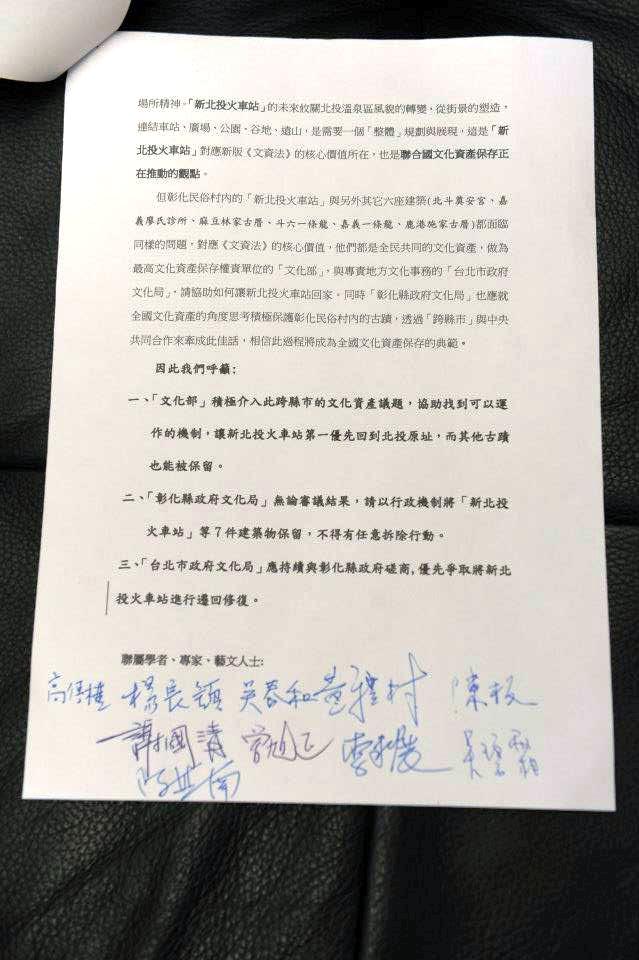 場所精神。「新北投火車站」的未來攸關北投溫泉區風貌的轉變，從街景的塑造，
連結車站、廣場、公園、谷地、遠山，是需要一個「整體」規劃與展現，這是「新
北投火車站」對應新版《文資法》的核心價值所在，也是聯合國文化資產保存正
在推動的觀點。
但彰化民俗村內的「新北投火車站」與另外其它六座建築(北斗奠安宮、嘉
義廖氏診所、麻豆林家古厝、斗六一條龍、嘉義一條龍、鹿港施家古厝)都面臨
同樣的問題，對應《文資法》的核心價值，他們都是全民共同的文化資產，做為
最高文化資產保存權責單位的「文化部」，與專責地方文化事務的「台北市政府
文化局」，請協助如何讓新北投火車站回家。同時「彰化縣政府文化局」也應就
全國文化資產的角度思考積極保護彰化民俗村內的古蹟，透過「跨縣市」與中央
共同合作來牽成此佳話，相信此過程將成為全國文化資產保存的典範。
因此我們呼籲：
一、「文化部」積極介入此跨縣市的文化資產議題，協助找到可以運
作的機制，讓新北投火車站第一優先回到北投原址，而其他古蹟
也能被保留。
二、「彰化縣政府文化局」無論審議結果，請以行政機制將「新北投
火車站」等7件建築物保留，不得有任意拆除行動。
三、「台北市政府文化局」應持續與彰化縣政府磋商，優先爭取將新北
投火車站進行遷回修復。
聯屬學者、專家、藝文人士:
楊長鎮 吳春和 陳板
謝國清 曾旭正